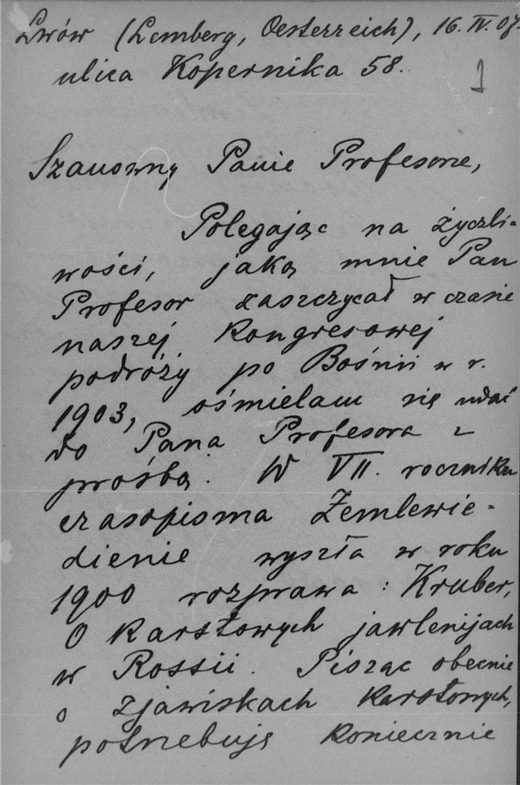 Lwów (Lemberg, Oesterreich), 16.IV.07.
ulica Kopernika 58.
1
Szanowny Panie Profesorze,
Polegając na życzli-
wości, jaką mnie Pan
Profesor zaszczycał w czasie
naszej kongresowej
podróży po Bośnii w r.
1903, ośmielam się udać
do Pana Profesora z
prośbą. W VII. roczniku
czasopisma Zemlewie-
dienie wyszła w roku
1900 rozprawa: Kruber,
O karstowych jawlenijach
w Rossii. Pisząc obecnie
o zjawiskach karstowych,
potrzebuję koniecznie